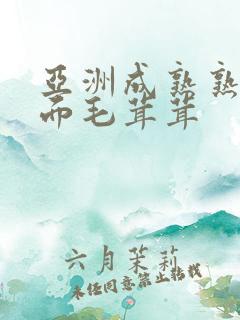 亞洲成熟熟
帶毛茸茸
六月茉莉
未经同意禁止转载